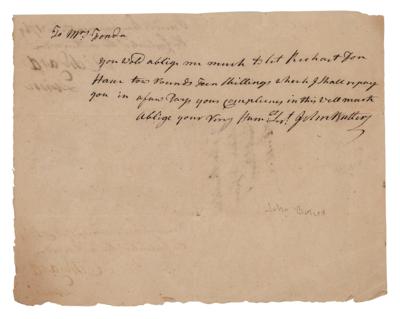 To Mrs Fonda
you wold ablige me much to let Richart Don
Haue tow Pounds Teen Shillings which I Shall repay
you in a few Days your Complieng in this Will much
Ablige your Very Hum Ser.t John Butler
John Butler